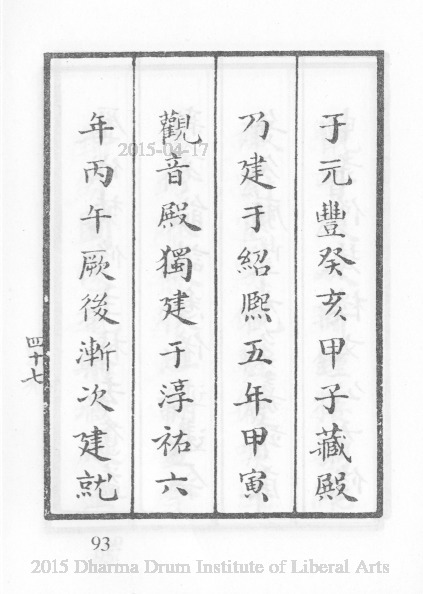 于元豐癸亥甲子藏殿
乃建于紹熙五年甲寅
觀音殿獨建于淳祐六
年丙午厥後漸次建就
四十七
93
2015-04-17
2015 Dharma Drum Institute of Liberal Arts